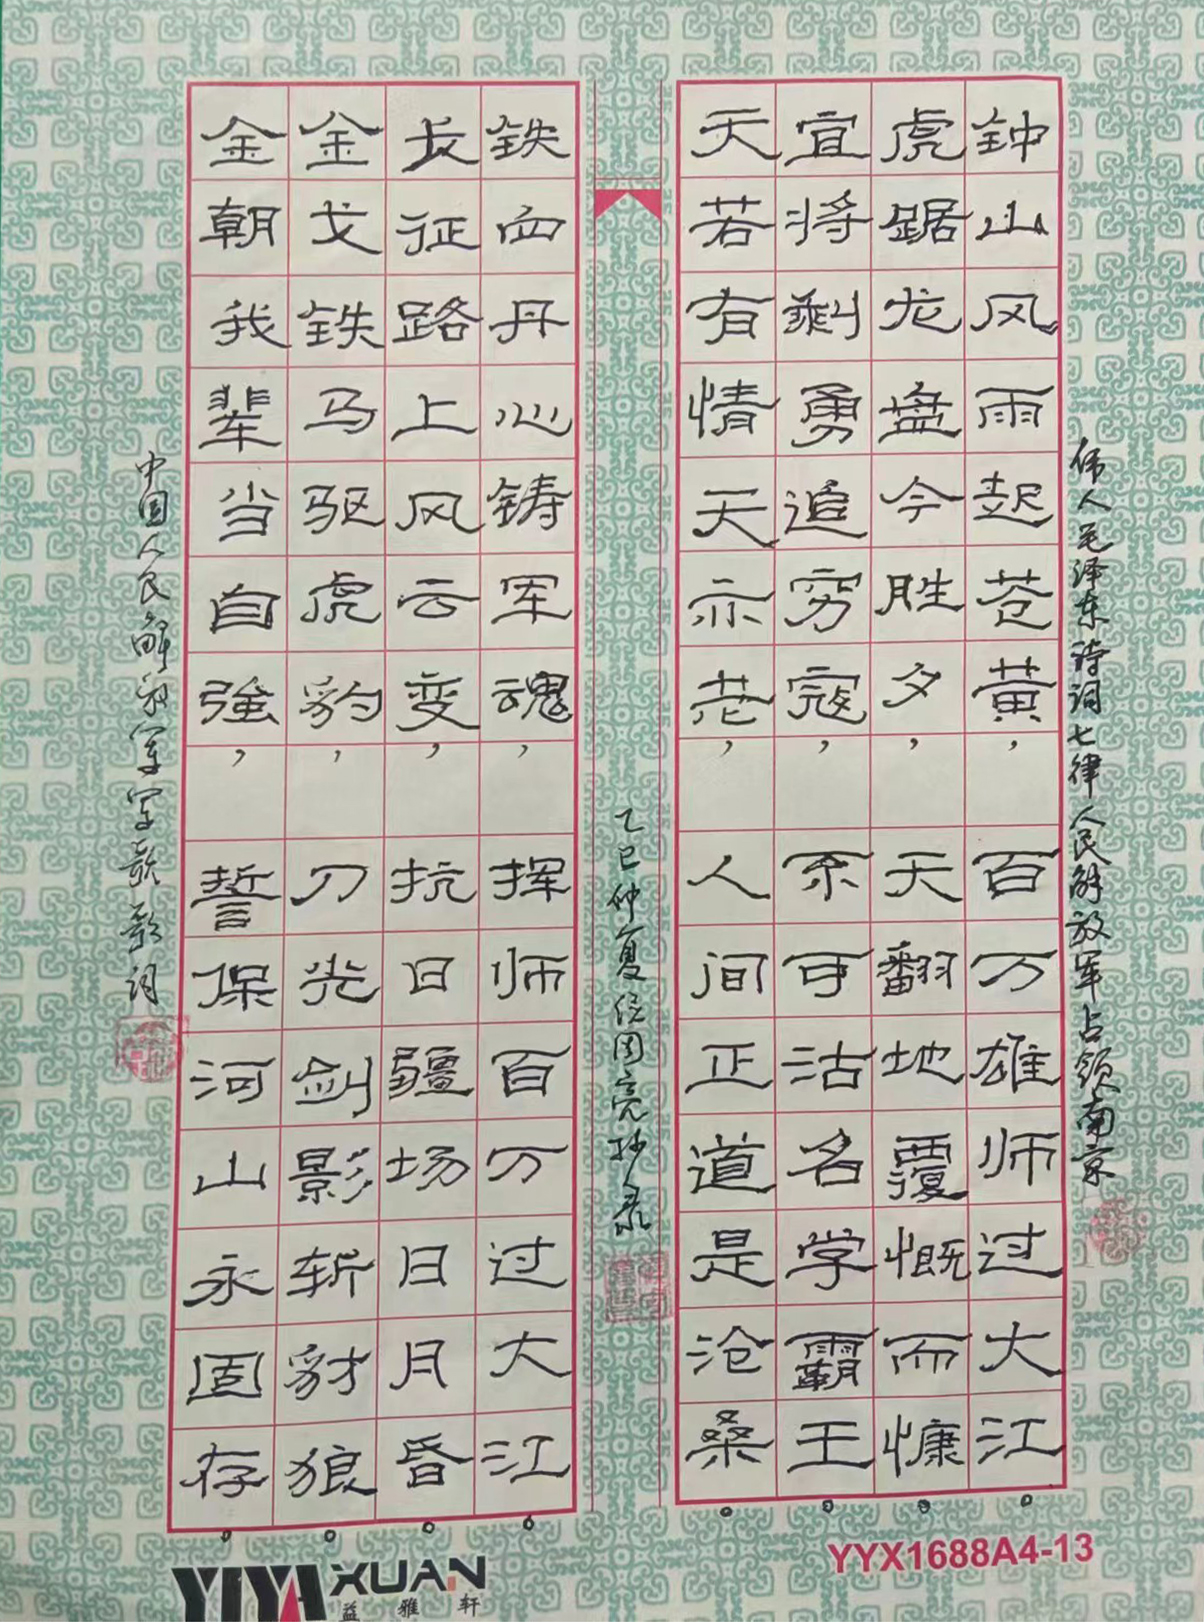 伟人毛泽东诗词七律人民解放军占领南京
钟山风雨起苍黄，百万雄师过大江。
虎踞龙盘今胜夕，天翻地覆慨而慷。
宜将剩勇追穷寇，不可沽名学霸王。
天若有情天亦老，人间正道是沧桑。
乙巳仲夏国亮抄录
铁血丹心铸军魂，挥师百万过大江。
长征路上风云变，抗日疆场日月昏。
金戈铁马驱虎豹，刀光剑影斩豺狼。
金朝我辈当自強，誓保河山永固存。
中国人民解放军军歌歌词
YIYA XUAN
益雅轩
YYX1688A4-13